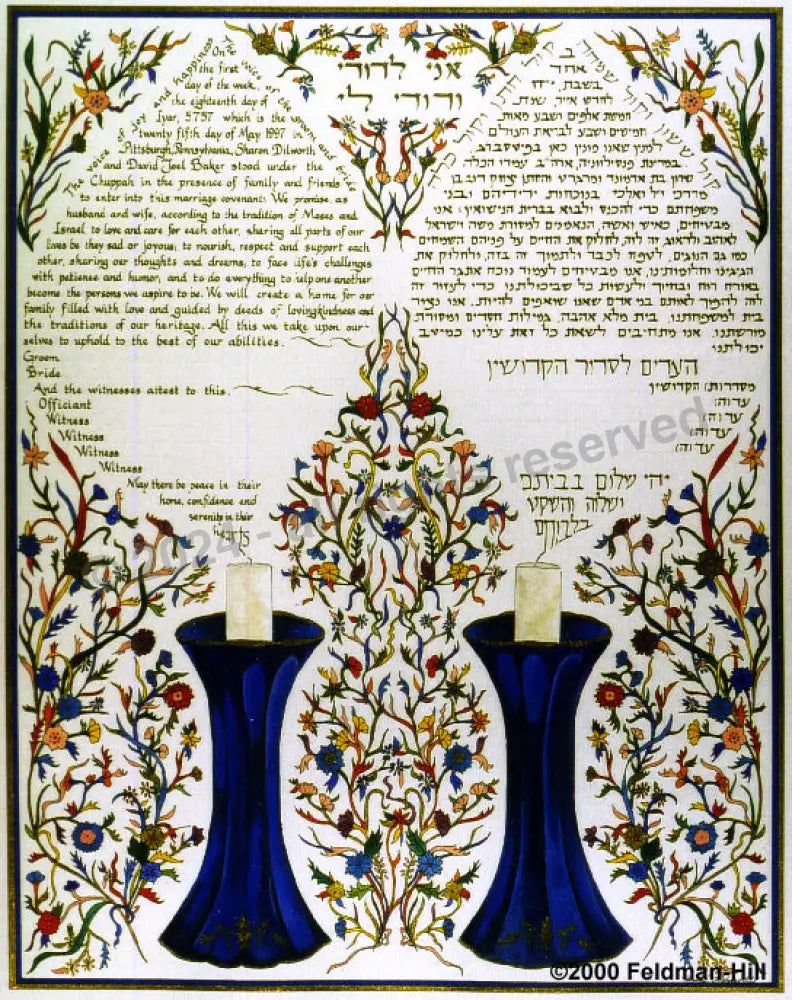 אני לדודי
ודודי לי
The voice of joy and happiness The voice of the groom and bride
On
the first
day of the week,
the eighteenth day of
Iyar, 5757 which is the
twenty fifth day of May 1997 in
Pittsburgh, Pennsylvania, Sharon Dilworth
and David Joel Baker stood under the
Chuppah in the presence of family and friends
to enter into this marriage covenant: We promise, as
husband and wife, according to the tradition of Moses and
Israel to love and care for each other, sharing all parts of our
lives be they sad or joyous; to nourish, respect and support each
other, sharing our thoughts and dreams, to face life's challenges
with patience and humor, and to do everything to help one another
become the persons we aspire to be. We will create a home for our
family filled with love and guided by deeds of lovingkindness and
the traditions of our heritage. All this we take upon our-
selves to uphold to the best of our abilities.
Groom
Bride
And the witnesses attest to this.
Officiant
Witness
Witness
Witness
Witness
May there be peace in their
home, confidence and
serenity in their
hearts
קול ששון וקול שמחה קול חתן וקול כלה
ב
אחד
בשבת, י״ח
לחדש אייר, שנת
חמשת אלפים ושבע מאות
חמישים ושבע לבריאת העולם
למנין שאנו מונין כאן בפיטסבורג
במדינת פנסילווניה, ארה״ב עמדו הכלה
משפחתם כדי להכנס ולבוא בברית הנישואין: אנו
מבטיחים, כאיש ואשה, הנאמנים למסורת משה וישראל
לאהוב ולדאוג זה לזה, לחלוק את החיים על פניהם השמחים
כמו גם העגים, לטפח לכבד ולתמוך זה בזה, ולחלוק את
הגיגינו וחלומותינו, אנו מבטיחים לעמוד נוכח אתגר החיים
באורח רוח ובחיוך ולעשות כל שביכולתנו כדי לעזור זה
לזה להפוך לאותם בני אדם שאנו שואפים להיות, אנו ניצור
בית למשפחתנו, בית מלא אהבה, גמילות חסדים ומסורת
מורשתנו, אנו מתחייבים לשאת כל זאת עלינו כמיטב
יכולתנו
העדים לסדור הקדושין
מסדרות הקדושין
עדות:
עדות:
עדות:
עדות:
יהי שלום בביתם
ושלוה והשקט
בלבותם
© 2024 - all rights reserved
©2000 Feldman-Hill